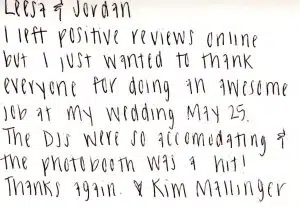 Leesa & Jordan
I left positive reviews online
but I just wanted to thank
everyone for doing an awesome
job at my wedding May 25.
The DJs were so accomodating &
the photobooth was a hit!
Thanks again. Kim Mallinger